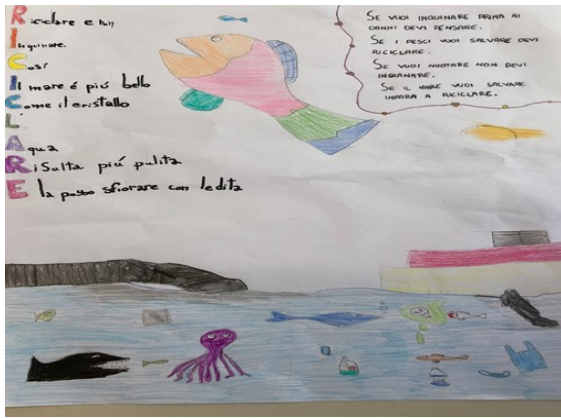 Riciclare e non
Inquinare.
Così
Il mare é più bello
Come il cristallo
L
Aqua
RiSulta più pulita
E la posso sfiorare con le dita
SE VUOI INQUINARE PRIMA AI
DANNI DEVI PENSARE.
SE I PESCI VUOI SALVARE DEVI
RICICLARE.
SE VUOI NUOTARE NON DEVI
INQUINARE.
SE IL MARE VUOI SALVARE
IMPARA A RICICLARE.